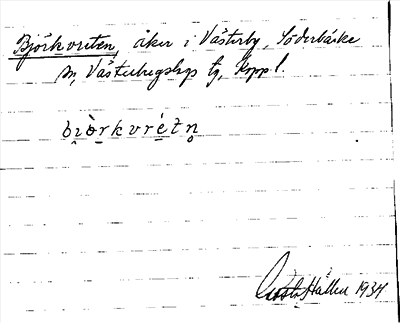 Björkvreten, åker i Västerby, Söderbärke
sn, Västerbergslags tg, Kopp l.
bìò̠rkvrétn̥
Gösta Hallen 1934